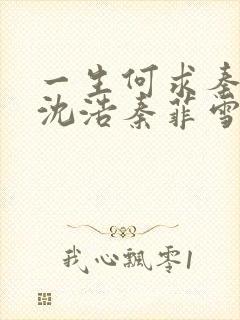 一生何求秦
沈浩秦菲雪
我心飘零1